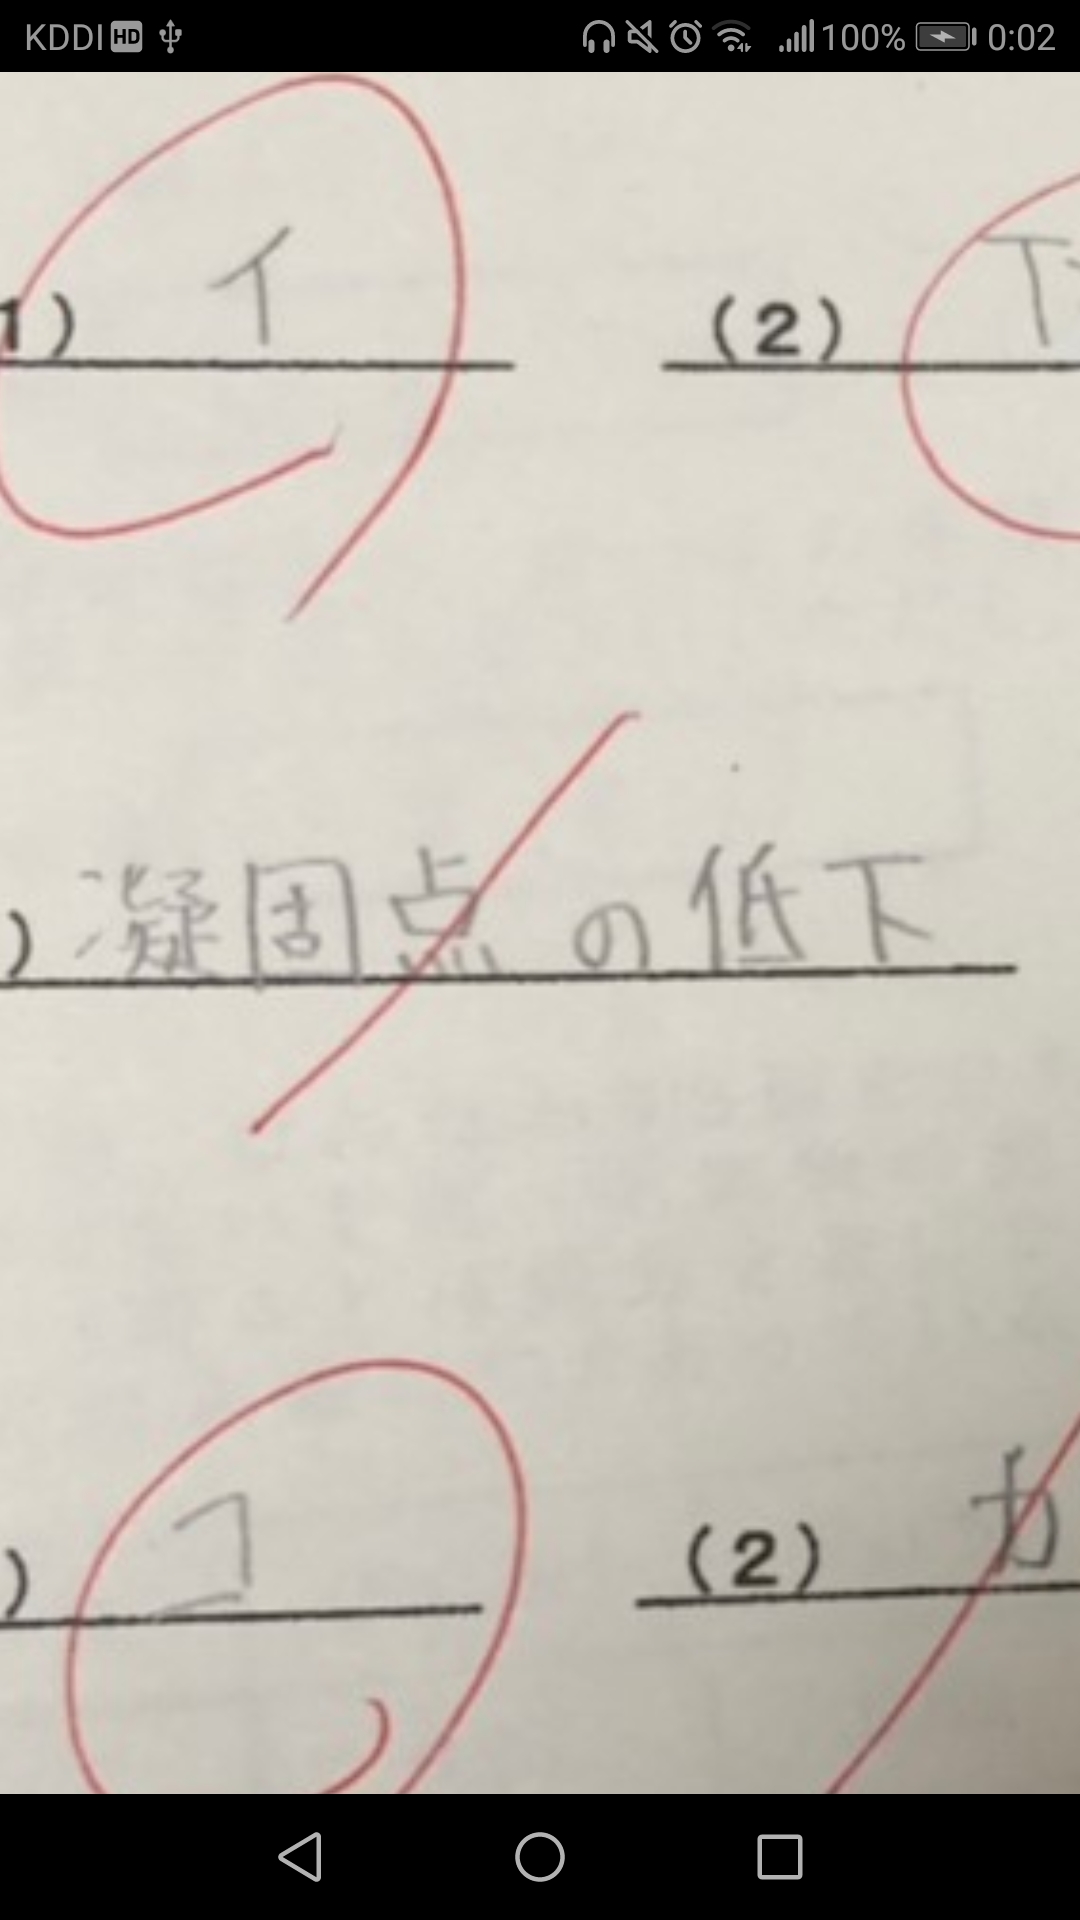 KDDI HD 100% 0:02
1) イ (2) 下
) 凝固点の低下
) コ (2) カ